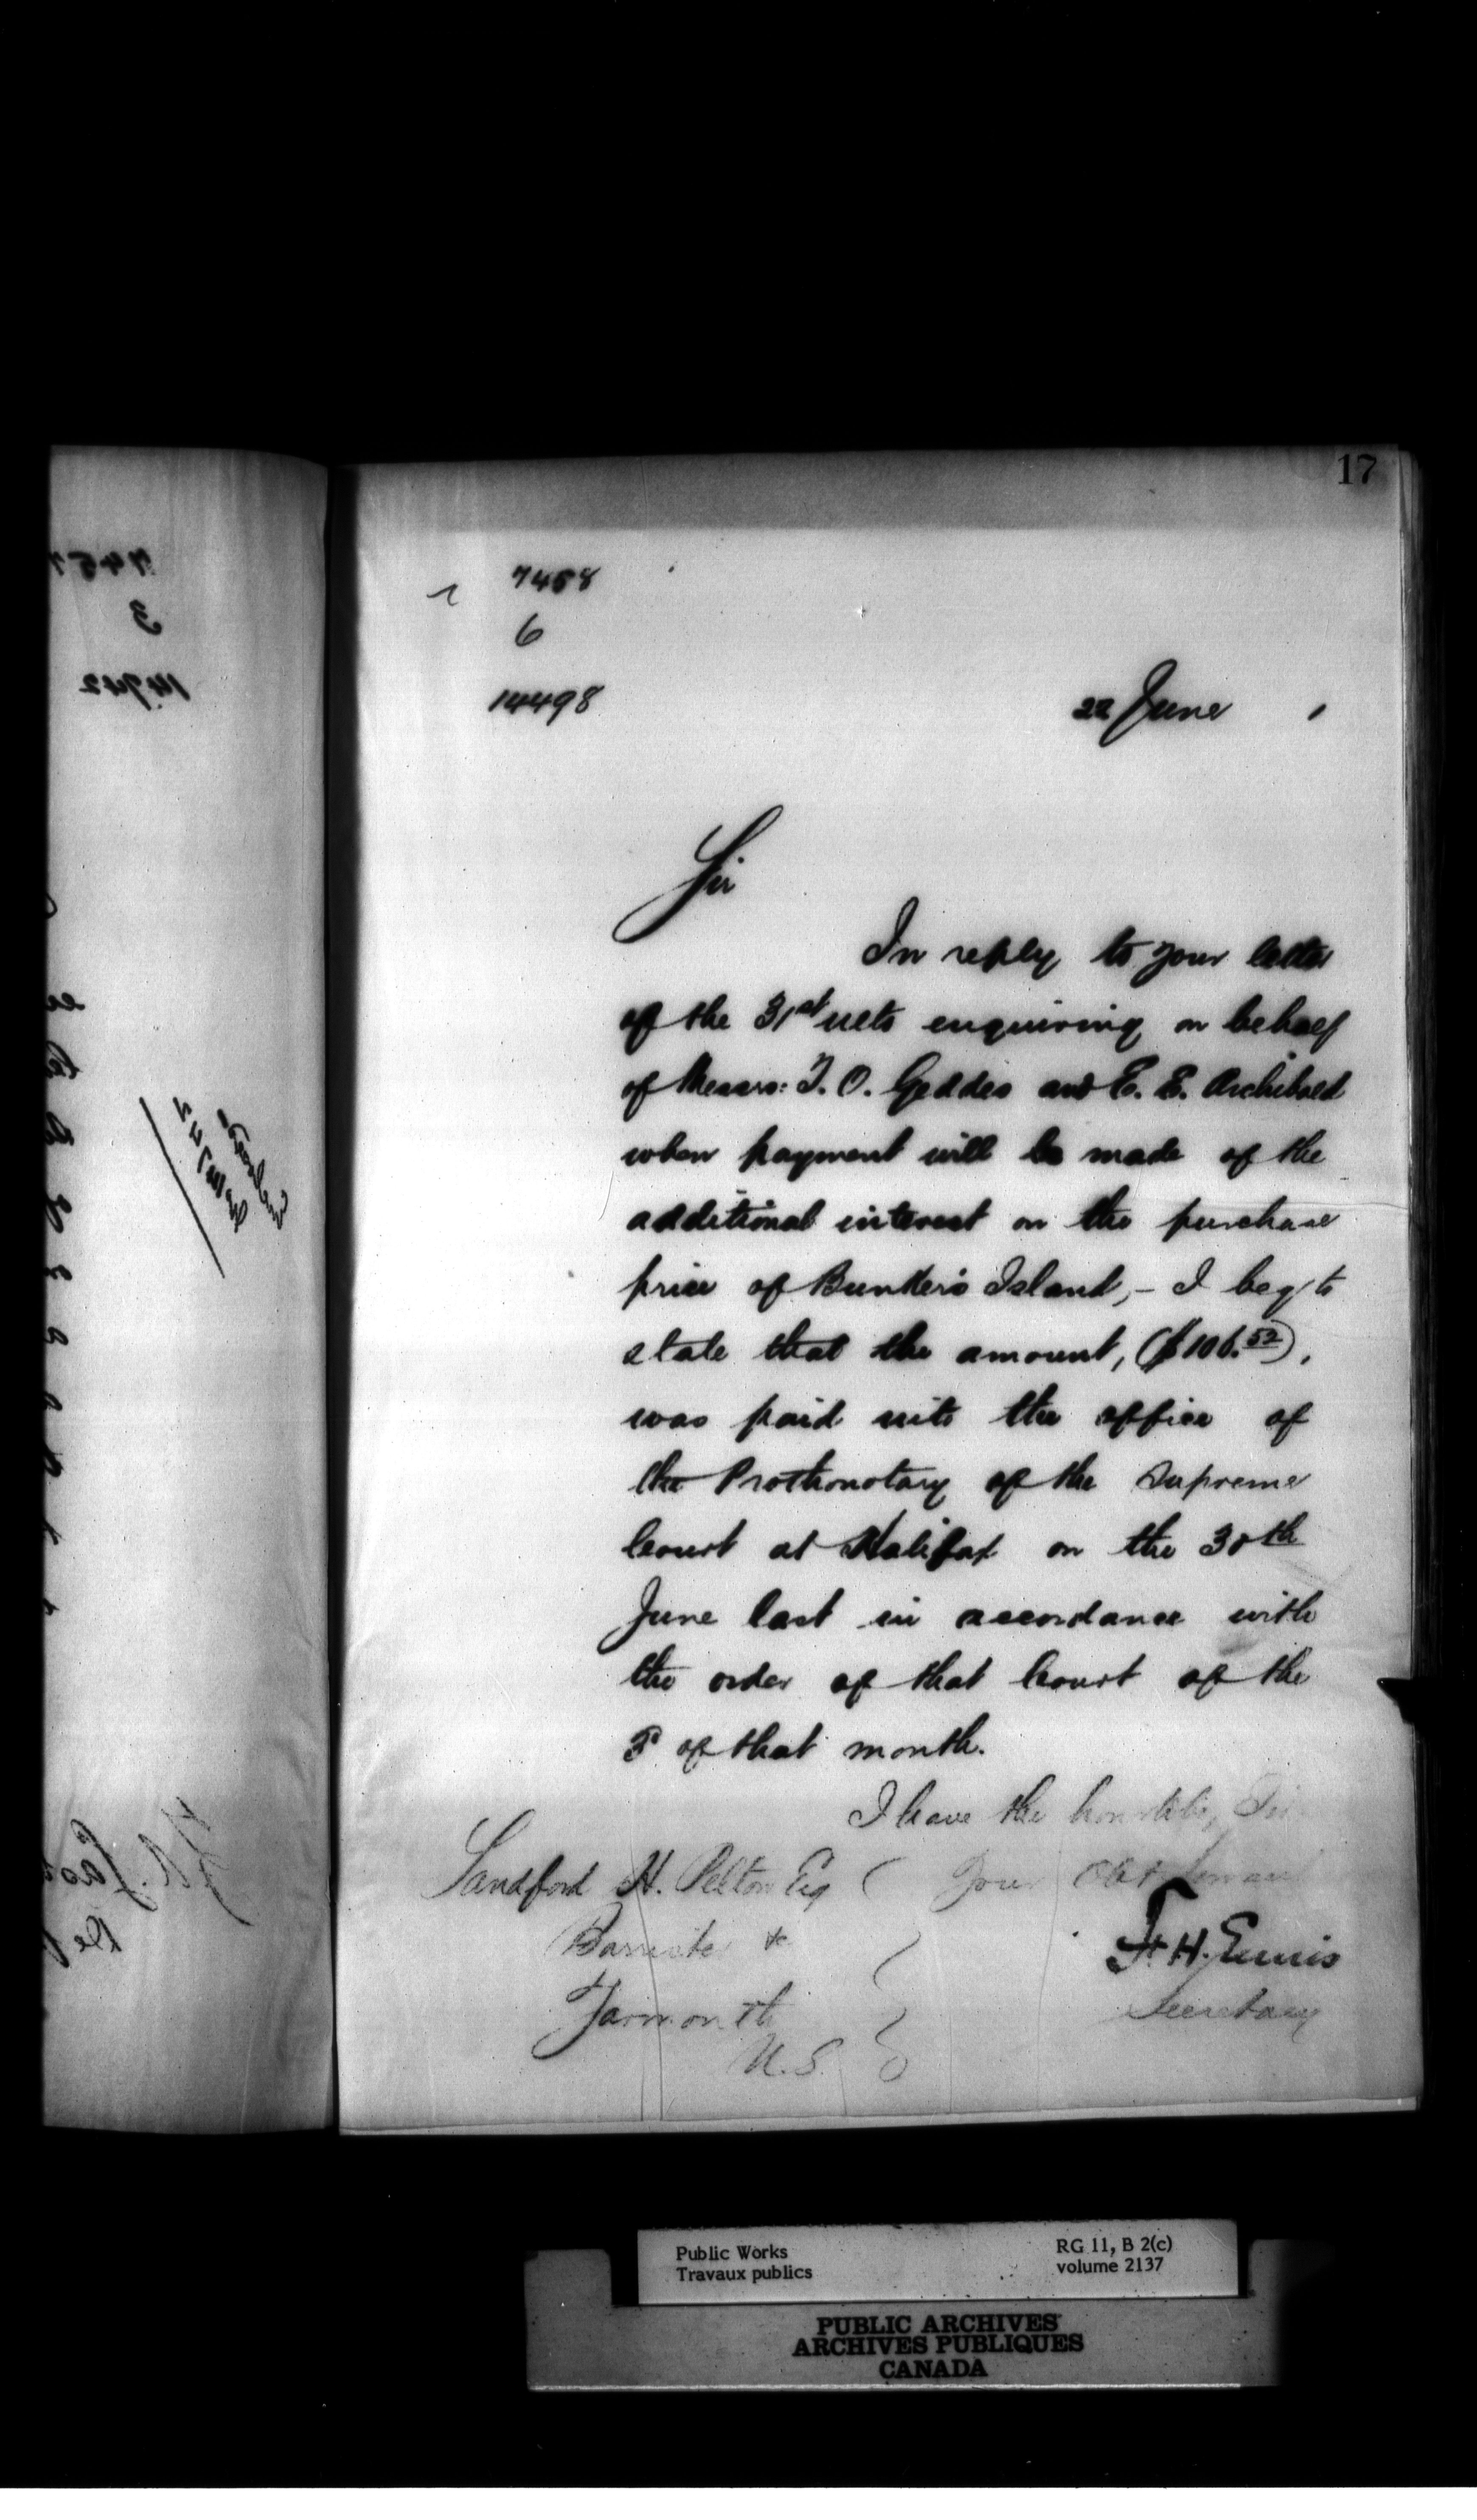 17
7458
6
14498
22 June 1
Sir
In reply to your letter
of the 31st ulto enquiring on behalf
of Messrs: T. O. Geddes and E. E. Archibald
when payment will be made of the
additional interest on the purchase
price of Bunker's Island, - I beg to
state that the amount, ($106.52),
was paid into the office of
the Prothonotary of the Supreme
Court at Halifax on the 30th
June last in accordance with
the order of that Court of the
of that month.
I have the honor to be, Sir
Your Obt Servant
Sandford H. Pelton Esq
Barrister &c
Yarmouth
N.S.
F. H. Ennis
Secretary
Public Works
Travaux publics
RG 11, B 2(c)
volume 2137
PUBLIC ARCHIVES
ARCHIVES PUBLIQUES
CANADA